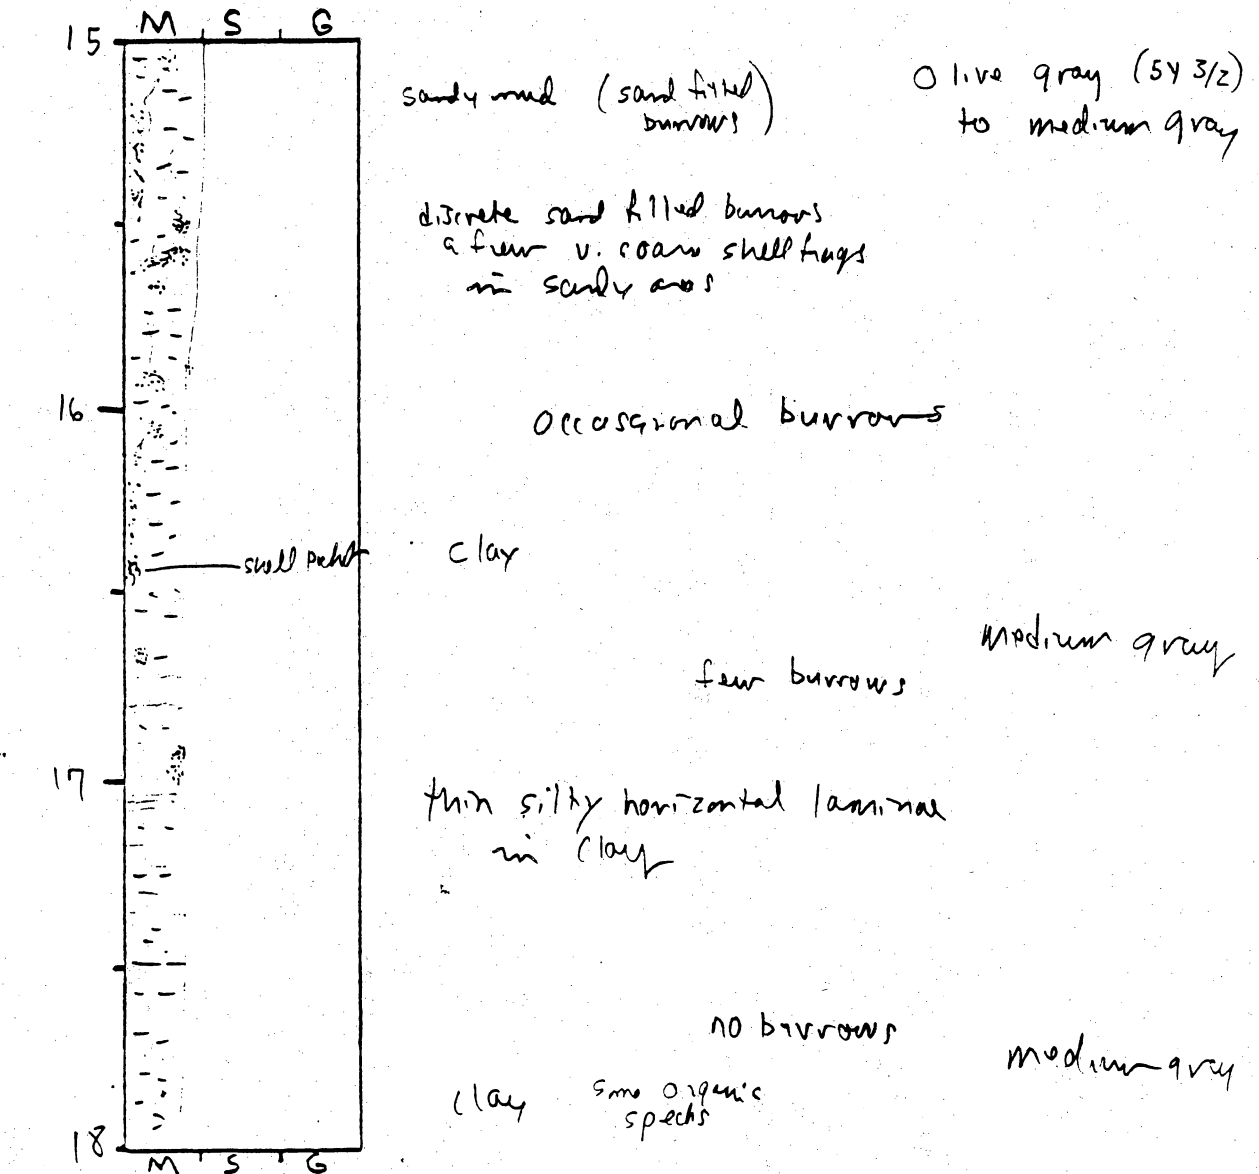 M S G
15
sandy mud (sand filled
burrows)
Olive gray (5Y 3/2)
to medium gray
discrete sand filled burrows
a few v. coarse shell frags
in sandy areas
16
Occassional burrows
shell pocket
clay
medium gray
few burrows
17
thin silty horizontal laminae
in clay
no burrows
medium gray
clay some organic
specks
18
M S G